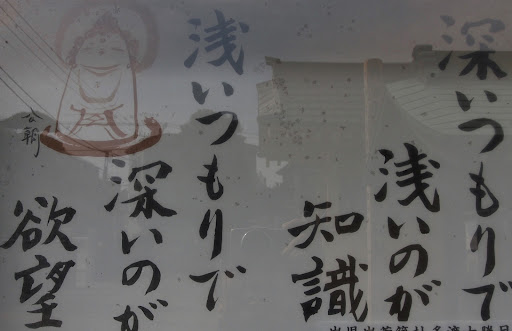 深いつもりで
浅いのが
知識
浅いつもりで
深いのが
欲望